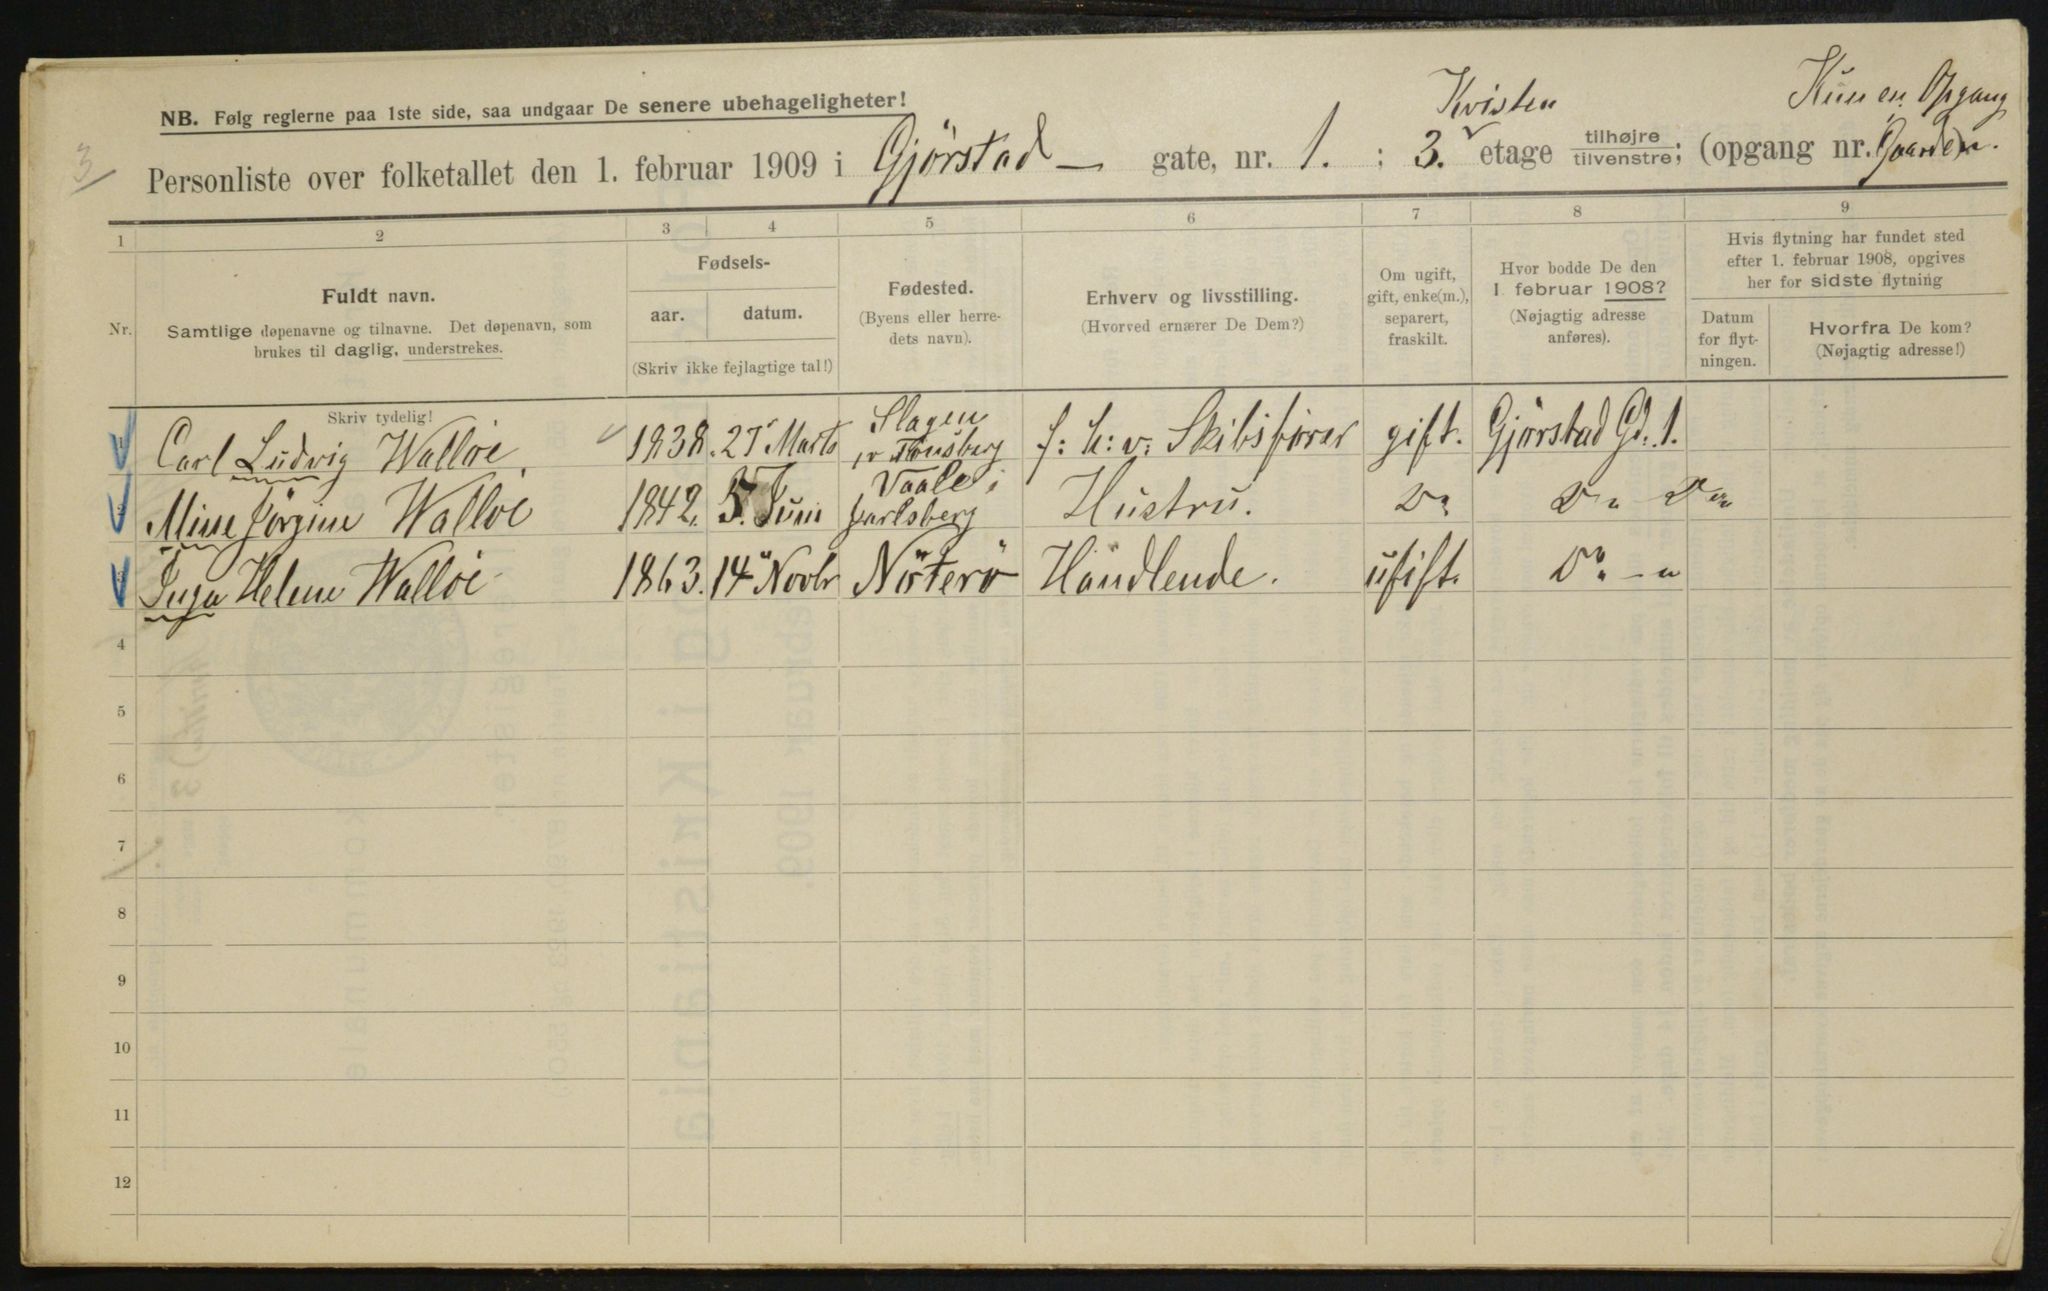 Kvisten Kun en Opgang
NB. Følg reglerne paa 1ste side, saa undgaar De senere ubehageligheter!
3
Personliste over folketallet den 1. februar 1909 i Gjørstad — gate, nr. 1. : 3. etage tilhøjre tilvenstre; (opgang nr. Gaarden).
1 2 3 4 5 6 7 8 9
Nr.
Fuldt navn.
Samtlige døpenavne og tilnavne. Det døpenavn, som
brukes til daglig, understrekes.
Skriv tydelig!
Fødsels-
aar. datum.
(Skriv ikke fejlagtige tal!)
Fødested.
(Byens eller herre-
dets navn).
Erhverv og livsstilling.
(Hvorved ernærer De Dem?)
Om ugift,
gift, enke(m.),
separert,
fraskilt.
Hvor bodde De den
1 februar 1908?
(Nøjagtig adresse
anføres).
Hvis flytning har fundet sted
efter 1. februar 1908, opgives
her for sidste flytning
Datum
for flyt-
ningen.
Hvorfra De kom?
(Nøjagtig adresse!)
1 Carl Ludvig Walløe 1838. 27 Marts Slagen pr Tønsberg f: h: v: Skibsfører gift. Gjørstad Gd. 1.
2 Mine Jörgine Walløe 1842. 5. Juni Vaale i Jarlsberg Hustru. Do Do Do
3 Inga Helene Walløe 1863. 14 Novbr Nöterö Handlende. ugift. Do - "
4
5
6
7
8
9
10
11
12